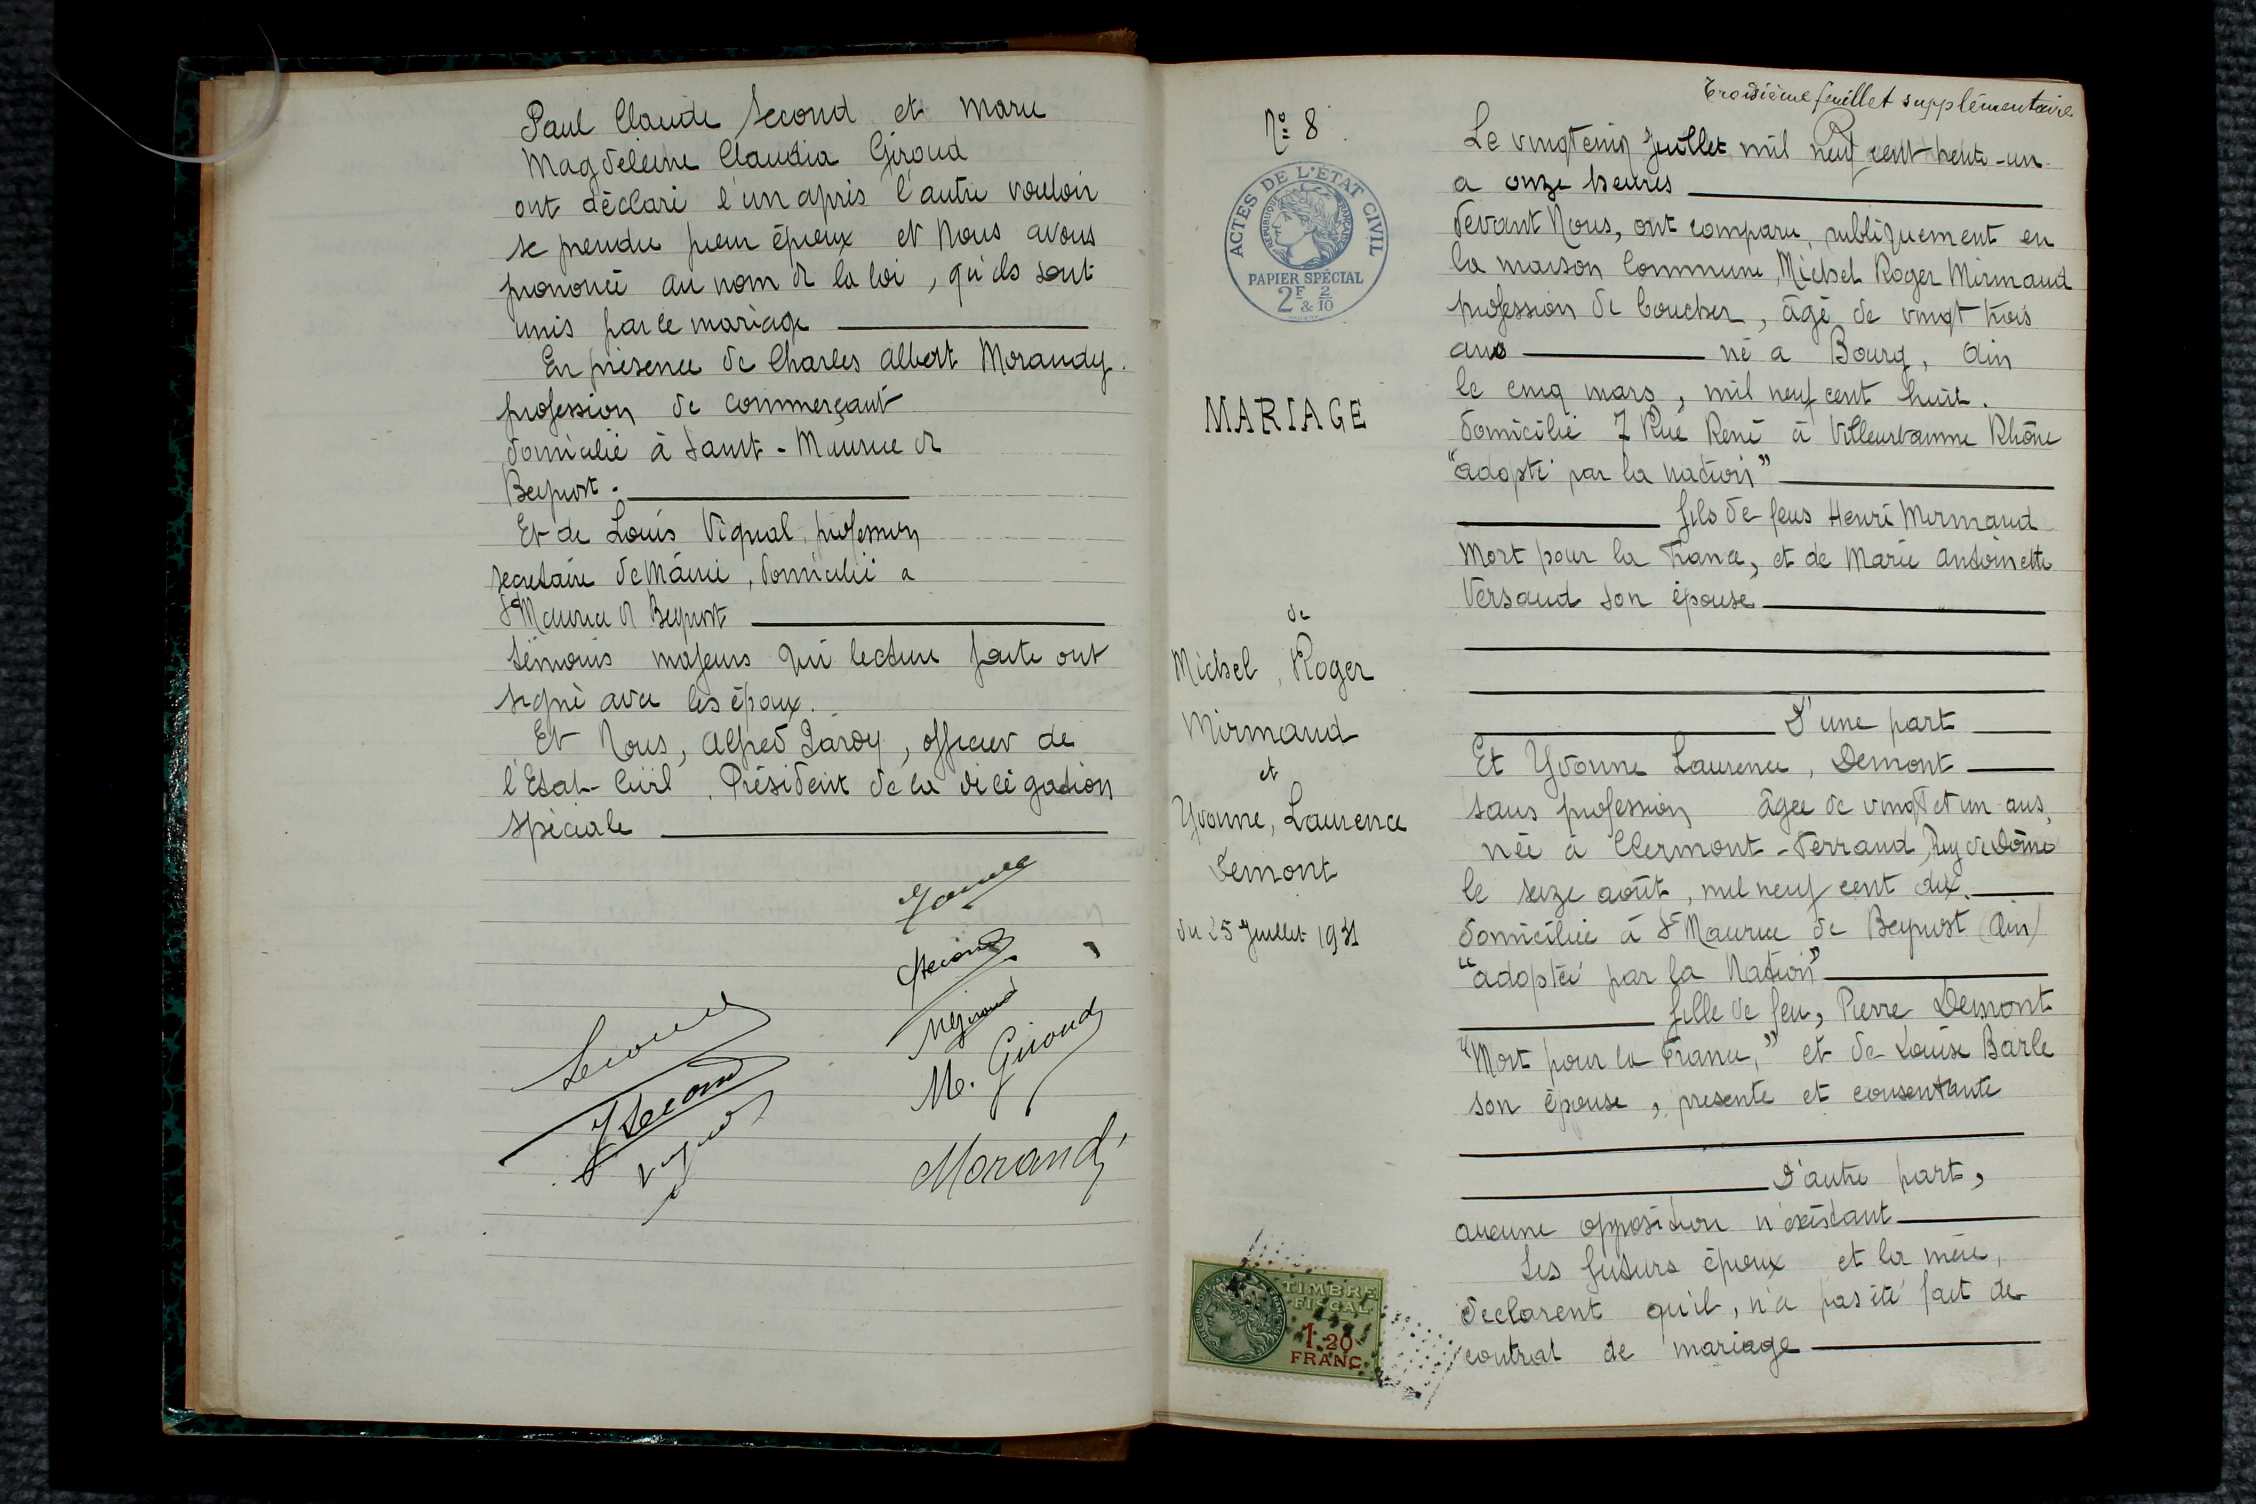 Paul Claude Second et Marie
Magdeleine Claudia Giroud
ont déclaré l'un après l'autre vouloir
se prendre pour époux et Nous avons
prononcé au nom de la loi, qu'ils sont
unis par le mariage
En présence de Charles Albert Morandy.
profession de commerçant
domicilié à Saint-Maurice de
Beynost.
Et de Louis Vignal, profession
secretaire de Mairie, domicilié a
St Maurice de Beynost
témoins majeurs qui lecture faite ont
signé avec les époux.
Et Nous, Alfred Jardy, officier de
l'Etat-Civil. Président de la délégation
spéciale
Second
Second
M. Giroud
Morandy
Troisième feuillet supplémentaire
No 8
ACTES DE L'ÉTAT CIVIL
RÉPUBLIQUE FRANÇAISE
PAPIER SPÉCIAL
2F & 2/10
MARIAGE
de
Michel, Roger
Mirmand
et
Yvonne, Laurence
Demont
du 25 Juillet 1931
TIMBRE
FISCAL
1.20
FRANC
Le vingt cinq Juillet mil neuf cent trente-un
a onze heures
devant Nous, ont comparu, publiquement en
la maison Commune, Michel Roger Mirmand
profession de boucher, âgé de vingt trois
ans né a Bourg, Ain
le cinq mars, mil neuf cent huit.
domicilié 7 Rue René à Villeurbanne Rhône
"adopté par la Nation"
fils de feus Henri Mirmand
Mort pour la France, et de Marie Antoinette
Versaud son épouse
D'une part
Et Yvonne Laurence, Demont
sans profession âgée de vingt et un ans,
née à Clermont-Ferrand, Puy de Dôme
le seize août, mil neuf cent dix.
domiciliée à St Maurice de Beynost (Ain)
"adoptée par la Nation"
fille de feu, Pierre Demont
"Mort pour la France," et de Louise Barle
son épouse, présente et consentante
D'autre part,
aucune opposition n'existant
Les futurs époux et la mère,
déclarent qu'il, n'a pas été fait de
contrat de mariage